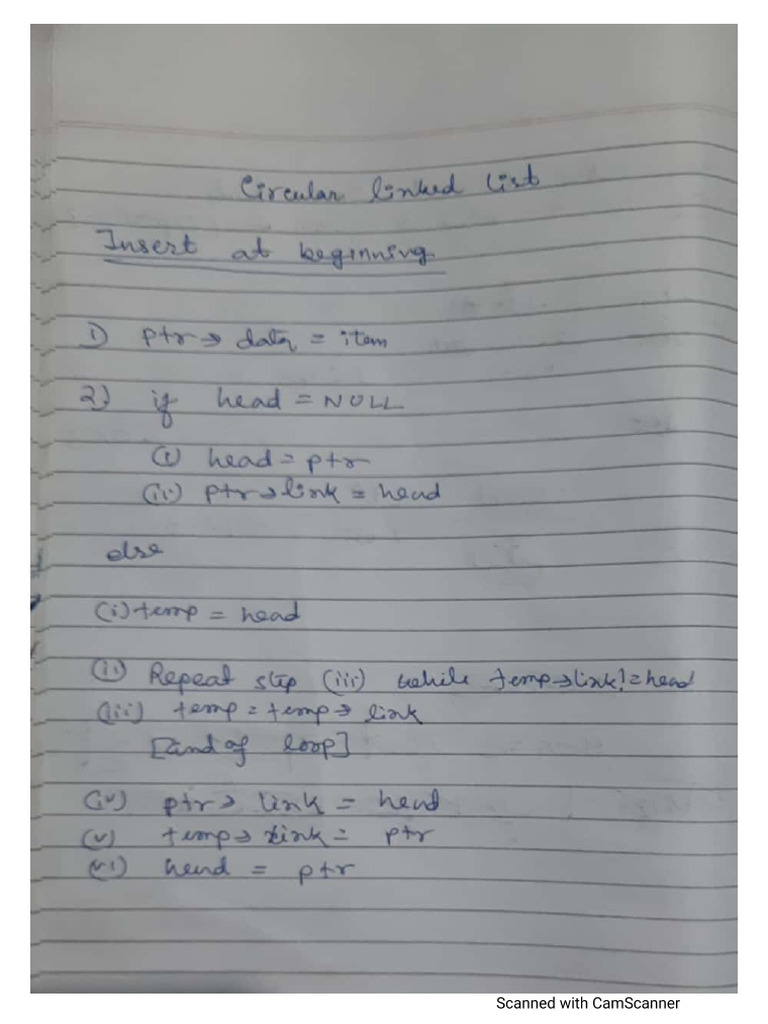 Circular linked list
Insert at beginning
1) ptr → data = item
2) if head = NULL
(i) head = ptr
(ii) ptr → link = head
else
(i) temp = head
(ii) Repeat step (iii) while temp → link != head
(iii) temp = temp → link
[End of loop]
(iv) ptr → link = head
(v) temp → link = ptr
(vi) head = ptr
Scanned with CamScanner